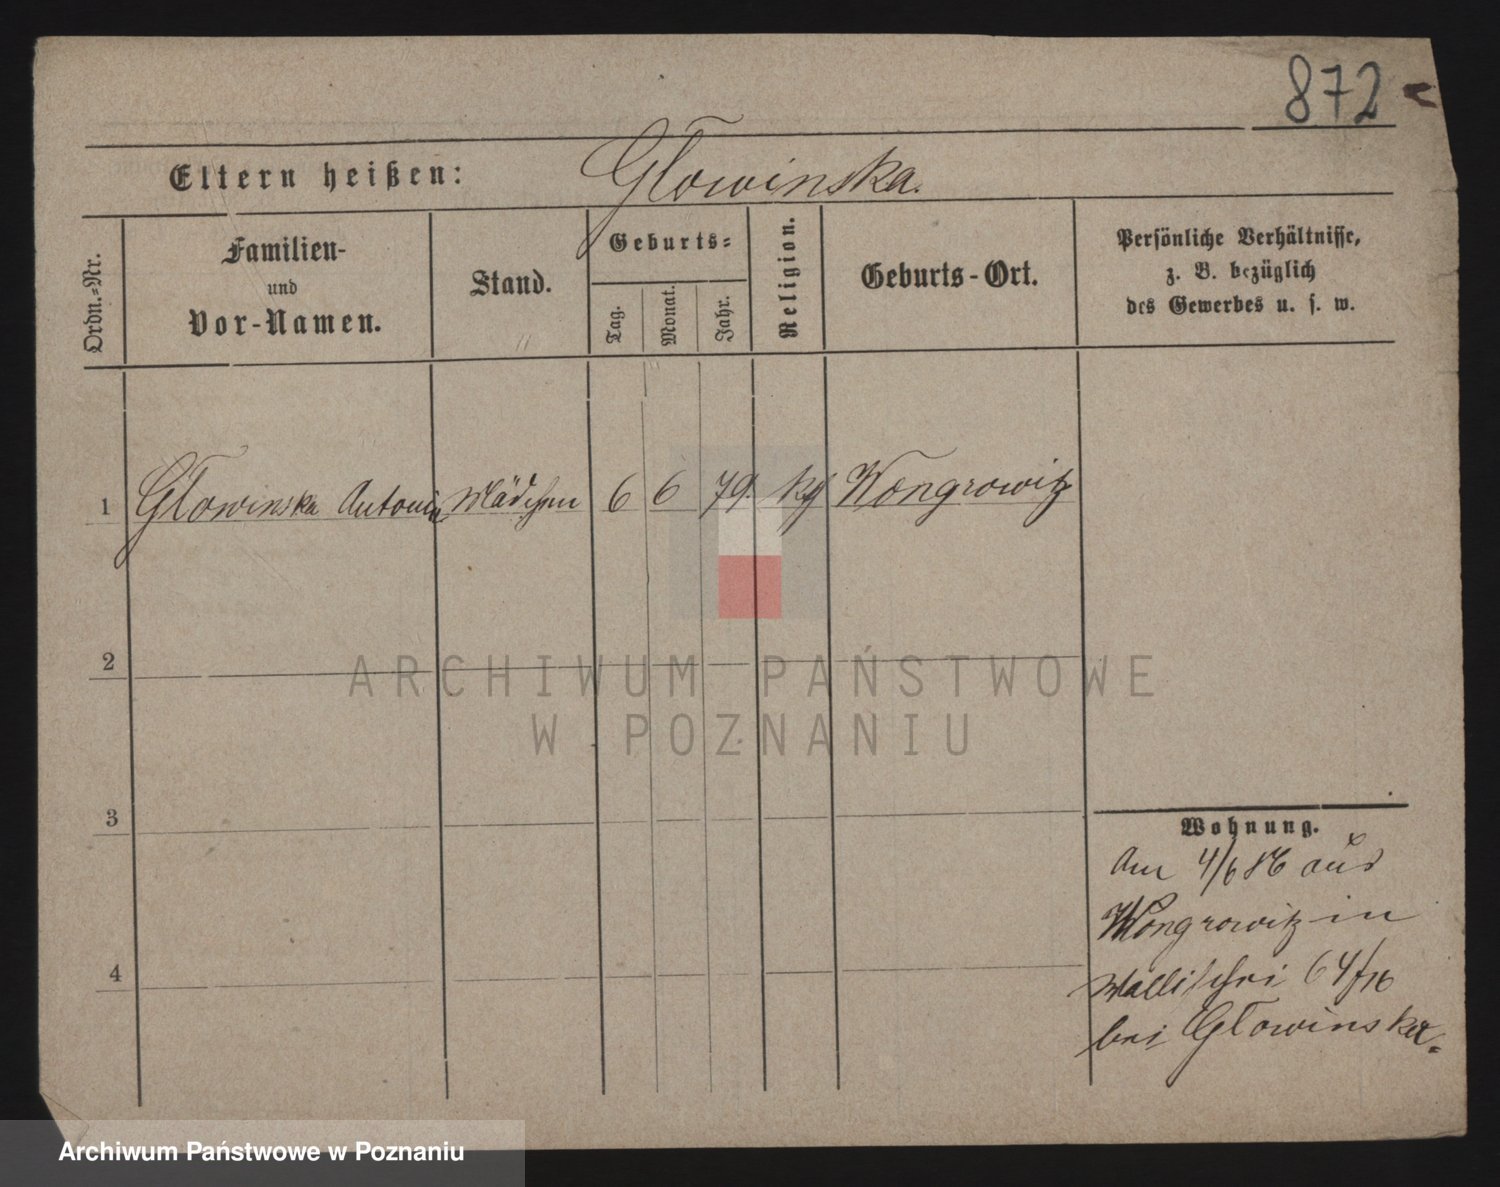 872
Eltern heißen: Głowinska.
Ordn.-Nr.
Familien-
und
Vor-Namen.
Stand.
Geburts-
Tag.
Monat.
Jahr.
Religion.
Geburts-Ort.
Persönliche Verhältnisse,
z. B. bezüglich
des Gewerbes u. s. w.
1 Głowinska Antonie Mädchen 6 6 79. kg Wongrowitz
2
3
4
Wohnung.
Am 4/6 86 aus
Wongrowitz in
Wallischei 64/
bei Głowinska.
ARCHIWUM PAŃSTWOWE
W POZNANIU
Archiwum Państwowe w Poznaniu